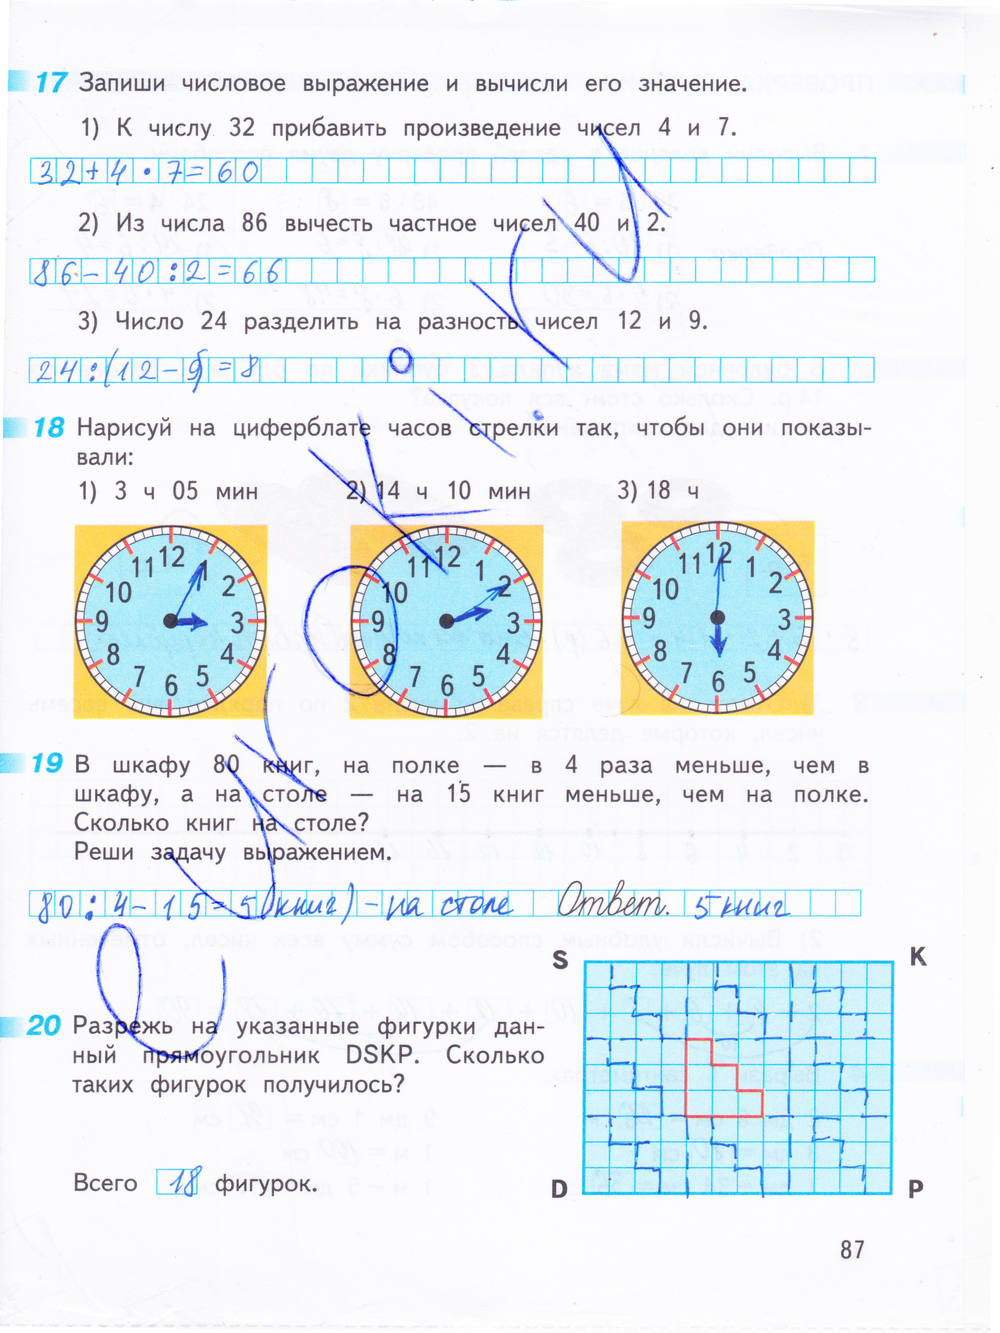 17 Запиши числовое выражение и вычисли его значение.
1) К числу 32 прибавить произведение чисел 4 и 7.
32+4·7=60
2) Из числа 86 вычесть частное чисел 40 и 2.
86-40:2=66
3) Число 24 разделить на разность чисел 12 и 9.
24:(12-9)=8
18 Нарисуй на циферблате часов стрелки так, чтобы они показы-
вали:
1) 3 ч 05 мин 2) 14 ч 10 мин 3) 18 ч
12 1 2 3 4 5 6 7 8 9 10 11
12 1 2 3 4 5 6 7 8 9 10 11
12 1 2 3 4 5 6 7 8 9 10 11
19 В шкафу 80 книг, на полке — в 4 раза меньше, чем в
шкафу, а на столе — на 15 книг меньше, чем на полке.
Сколько книг на столе?
Реши задачу выражением.
80:4-15=5(книг)-на столе Ответ. 5 книг
S K
20 Разрежь на указанные фигурки дан-
ный прямоугольник DSKP. Сколько
таких фигурок получилось?
Всего 18 фигурок.
D P
87